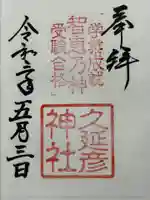 奉拝
学業成就
智恵乃神
受験合格
久延彦
神社
令和二年五月三日